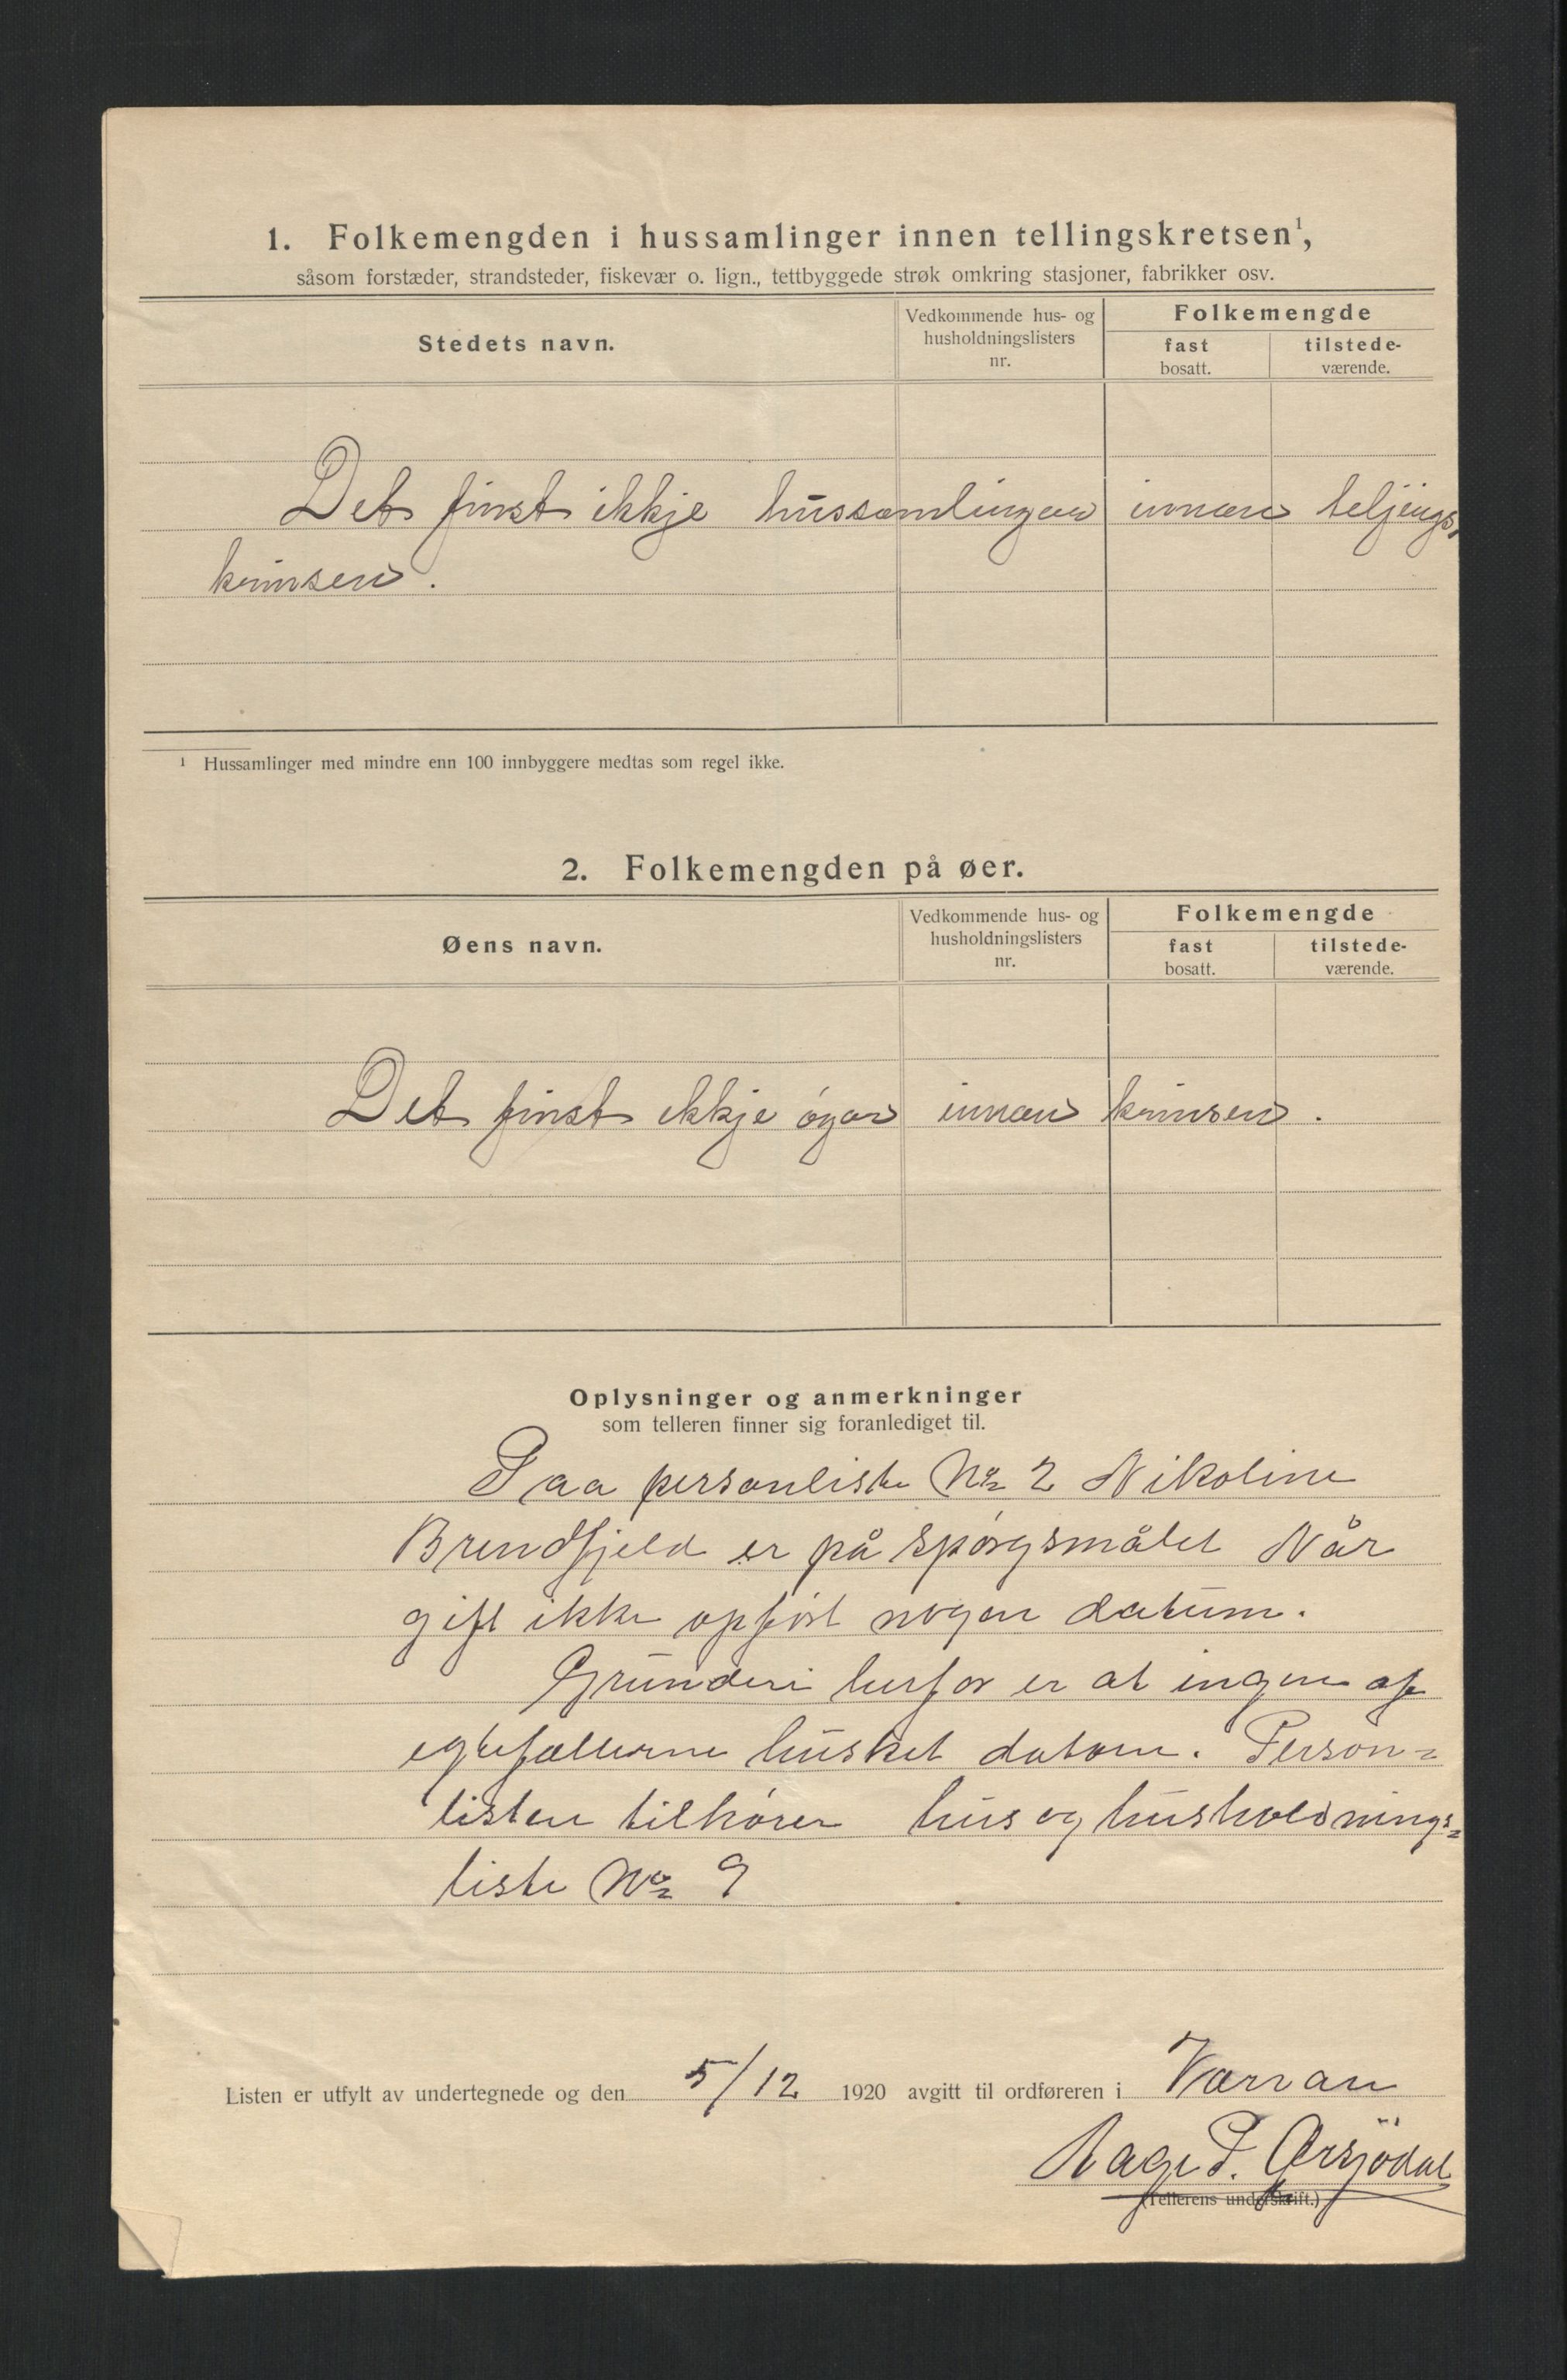 1. Folkemengden i hussamlinger innen tellingskretsen¹,
såsom forstæder, strandsteder, fiskevær o. lign., tettbyggede strøk omkring stasjoner, fabrikker osv.
Stedets navn.
Vedkommende hus- og
husholdningslisters
nr.
Folkemengde
fast
bosatt.
tilstede-
værende.
Det finst ikkje hussamlingar innan teljings-
krinsen.
¹ Hussamlinger med mindre enn 100 innbyggere medtas som regel ikke.
2. Folkemengden på øer.
Øens navn.
Vedkommende hus- og
husholdningslisters
nr.
Folkemengde
fast
bosatt.
tilstede-
værende.
Det finst ikkje øyar innan krinsen.
Oplysninger og anmerkninger
som telleren finner sig foranlediget til.
Paa personliste No 2 Nikoline
Brendfjeld er på spørgsmålet Når
gift ikke opført nogen datum.
Grunden herfor er at ingen af
egtefællerne husket datoen. Person=
listen tilhører hus og husholdnings=
liste No 9
Listen er utfylt av undertegnede og den 5/12 1920 avgitt til ordføreren i Verran
Aage P.
(Tellerens underskrift.)